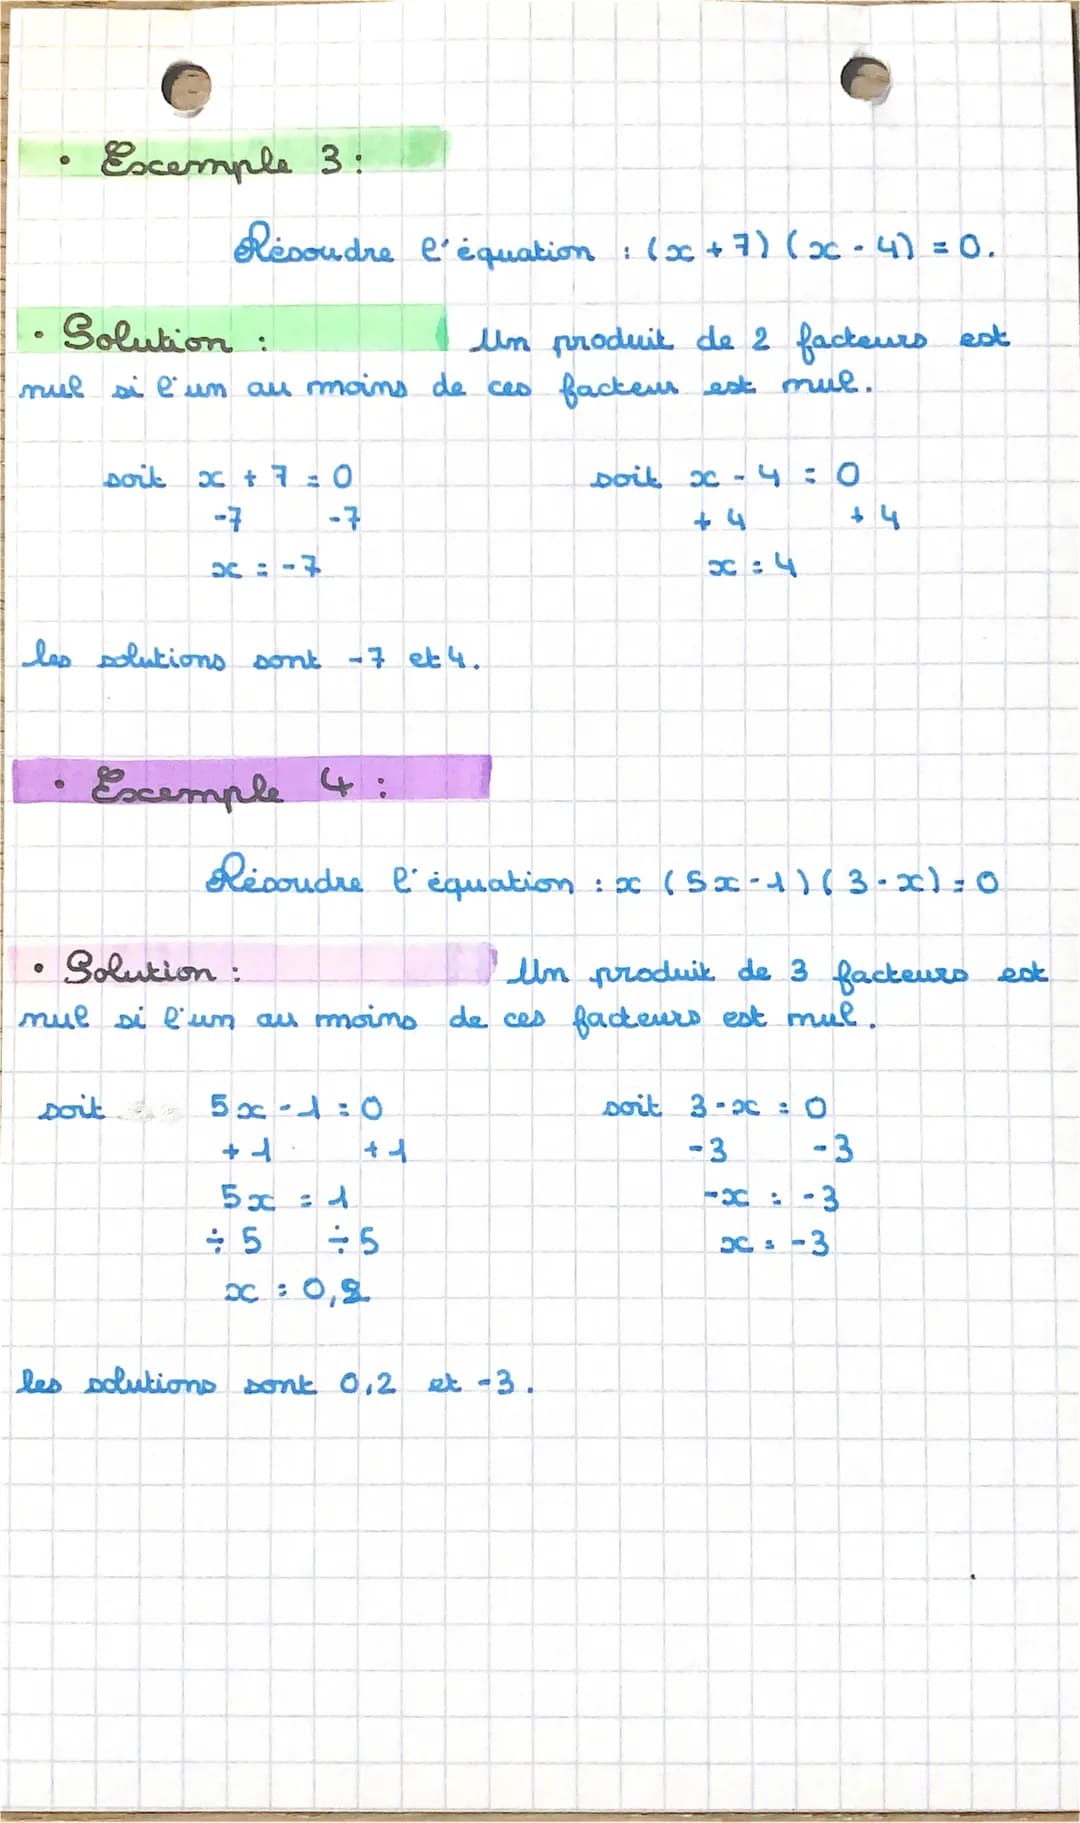 • Exemple 3 :
Résoudre l'équation : (x + 7) (x - 4) = 0.
• Solution : Un produit de 2 facteurs est
nul si l'un au moins de ces facteur est nul.
soit x + 7 = 0 soit x - 4 = 0
-7 -7 + 4 + 4
x = -7 x = 4
les solutions sont -7 et 4.
• Exemple 4 :
Résoudre l'équation : x (5x - 1) (3 - x) = 0
• Solution : Un produit de 3 facteurs est
nul si l'un au moins de ces facteurs est nul.
soit 5x - 1 = 0 soit 3 - x = 0
+ 1 + 1 -3 -3
5x = 1 -x = -3
÷ 5 ÷ 5 x = -3
x = 0,2
les solutions sont 0,2 et -3.